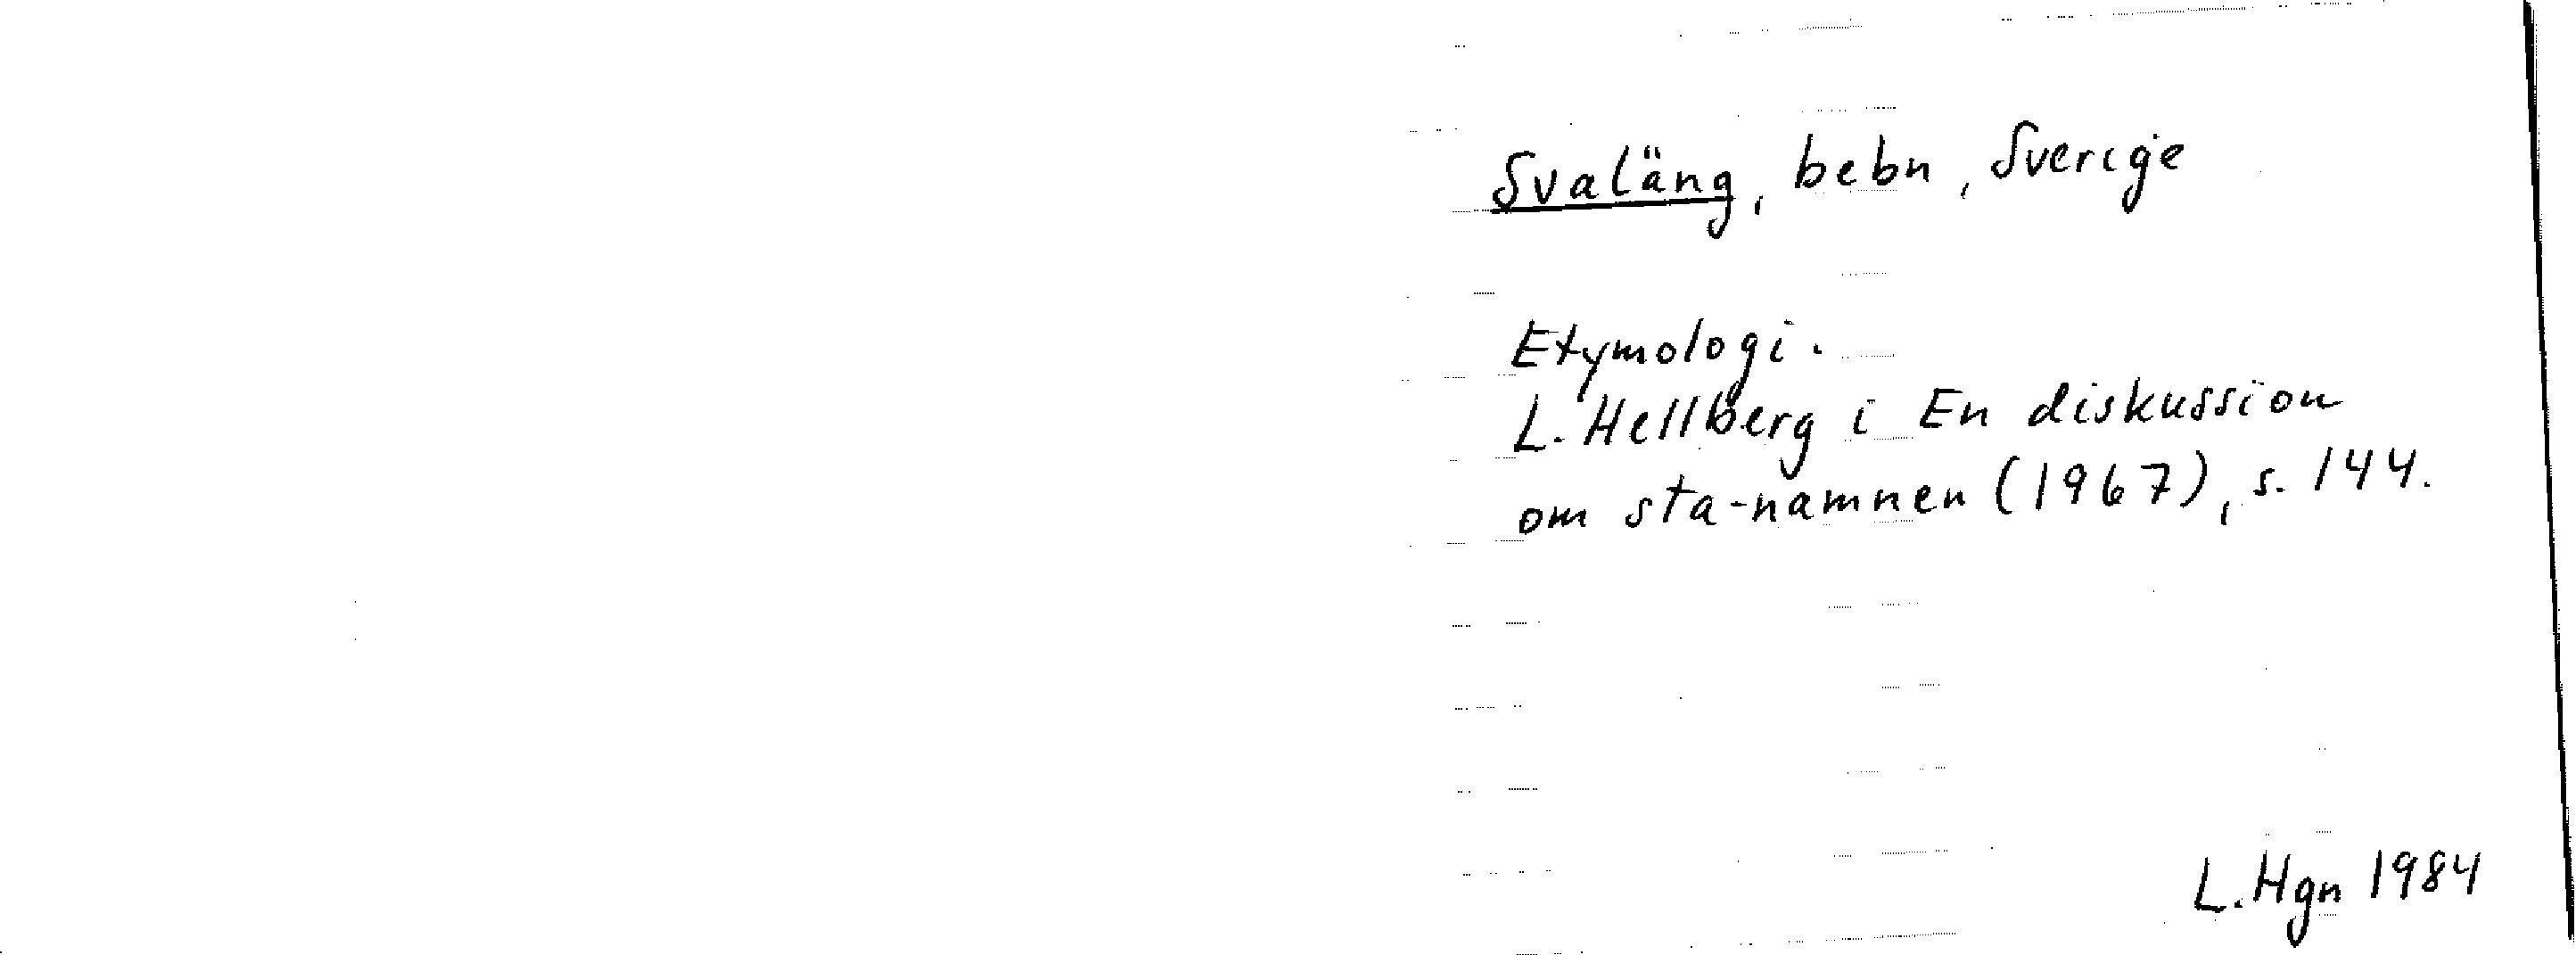 Svaläng, bebn, Sverige
Etymologi.
L. Hellberg i En diskussion
om sta-namnen (1967), s. 144.
L. Hgn 1984